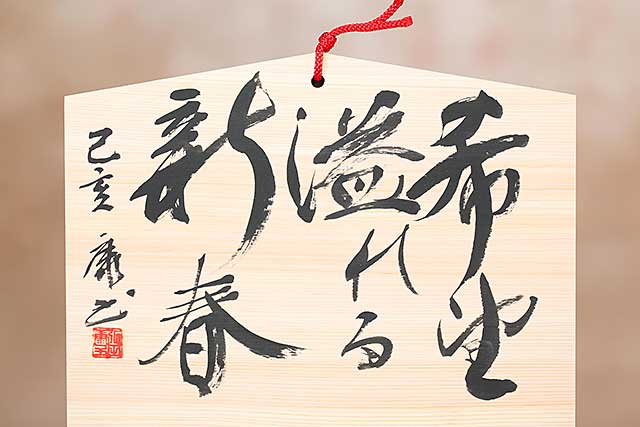 希望
溢れる
新春
己亥 康之